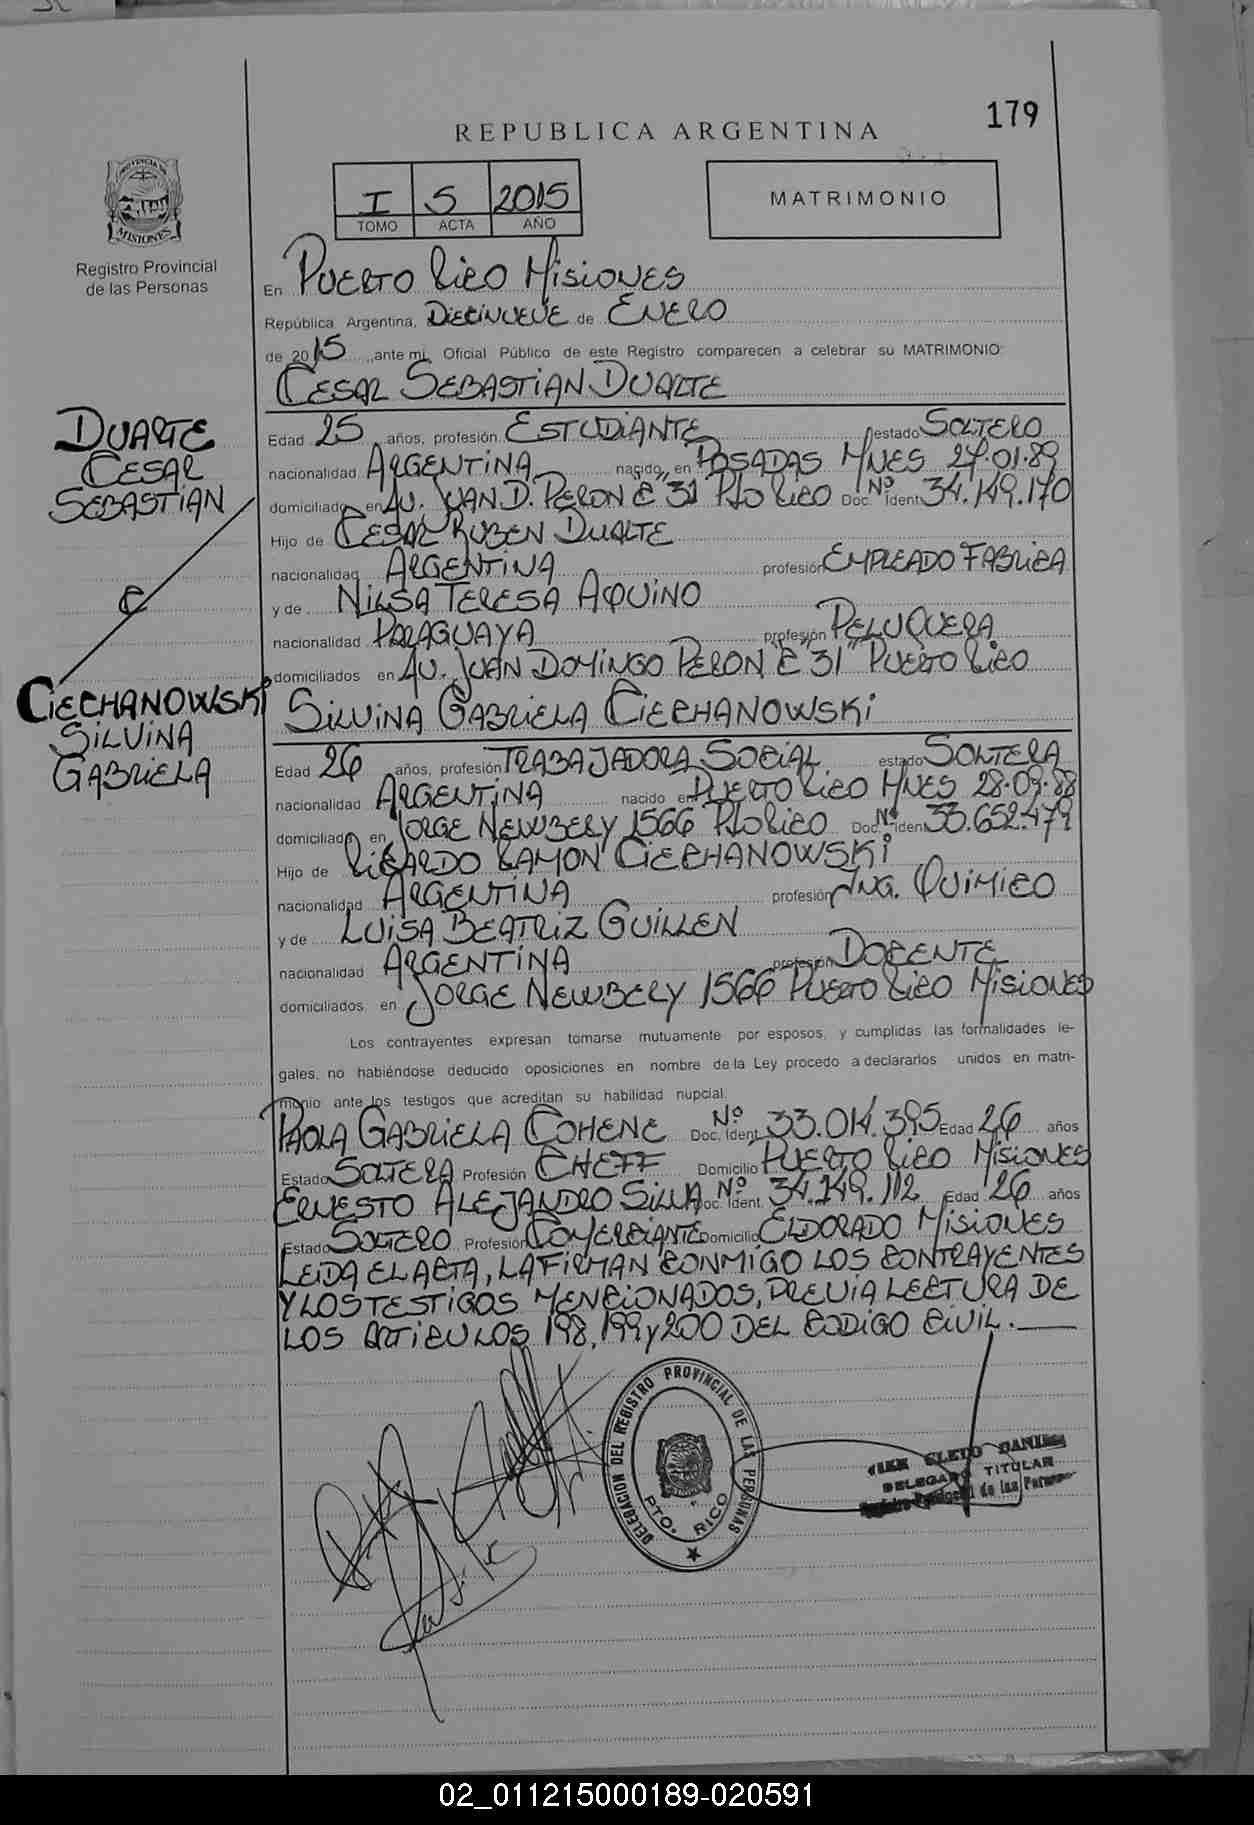 179
REPUBLICA ARGENTINA
PROVINCIA DE
MISIONES
Registro Provincial
de las Personas
I 5 2015
TOMO ACTA AÑO
MATRIMONIO
En PUERTO RICO MISIONES
República Argentina, DIECINUEVE de ENERO
de 2015 ante mi, Oficial Público de este Registro comparecen a celebrar su MATRIMONIO:
CESAR SEBASTIAN DUARTE
DUARTE
CESAR
SEBASTIAN
C
CIECHANOWSKI
SILVINA
GABRIELA
Edad 25 años, profesión ESTUDIANTE estado SOLTERO
nacionalidad ARGENTINA nacido en POSADAS MNES 27.01.89
domiciliado en AV. JUAN D. PERON C "31" PTO RICO Doc. Nº Ident 34.149.170
Hijo de CESAR RUBEN DUARTE
nacionalidad ARGENTINA profesión EMPLEADO FABRICA
y de NILSA TERESA AQUINO
nacionalidad PARAGUAYA profesión PELUQUERA
domiciliados en AV. JUAN DOMINGO PERON C "31" PUERTO RICO
SILVINA GABRIELA CIECHANOWSKI
Edad 26 años, profesión TRABAJADORA SOCIAL estado SOLTERA
nacionalidad ARGENTINA nacido en PUERTO RICO MNES 28.09.88
domiciliado en JORGE NEWBERY 1566 PTO RICO Doc. Nº Iden 33.652.479
Hijo de RICARDO RAMON CIECHANOWSKI
nacionalidad ARGENTINA profesión ING. QUIMICO
y de LUISA BEATRIZ GUILLEN
nacionalidad ARGENTINA profesión DOCENTE
domiciliados en JORGE NEWBERY 1566 PUERTO RICO MISIONES
Los contrayentes expresan tomarse mutuamente por esposos, y cumplidas las formalidades le-
gales, no habiéndose deducido oposiciones en nombre de la Ley procedo a declararlos unidos en matri-
monio ante los testigos que acreditan su habilidad nupcial.
PAOLA GABRIELA COHENE Doc. Nº Ident. 33.014.395 Edad 26 años
Estado SOLTERA Profesión CHEFF Domicilio PUERTO RICO MISIONES
ERNESTO ALEJANDRO SILVA Doc. Nº Ident. 34.249.112 Edad 26 años
Estado SOLTERO Profesión COMERCIANTE Domicilio ELDORADO MISIONES
LEIDA EL ACTA, LA FIRMAN CONMIGO LOS CONTRAYENTES
Y LOS TESTIGOS MENCIONADOS, PREVIA LECTURA DE
LOS ARTICULOS 198, 199 y 200 DEL CODIGO CIVIL.
DELEGACION DEL REGISTRO PROVINCIAL DE LAS PERSONAS
PTO. RICO
CLETO
DELEGADO TITULAR
Registro Provincial de las Personas
02_011215000189-020591